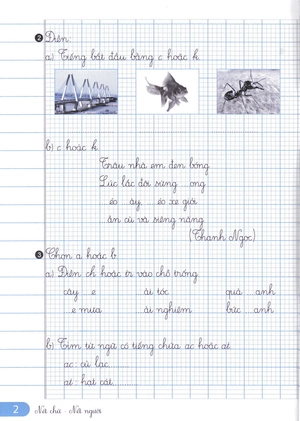 2 Điền:
a) Tiếng bắt đầu bằng c hoặc k
b) c hoặc k
Trâu nhà em đen bóng
Lúc lắc đôi sừng ...ong
...éo ...ày, ...éo xe giỏi
ăn cỏ và siêng năng
(Thanh Ngọc)
3 Chọn a hoặc b
a) Điền ch hoặc tr vào chỗ trống
cây ...e ...ái tóc quả ...anh
...e mưa ...ải nghiệm bức ...anh
b) Tìm từ ngữ có tiếng chứa ac hoặc at
ac: củ lạc,..........
at: hạt cát,..........
2 Nét chữ - Nết người